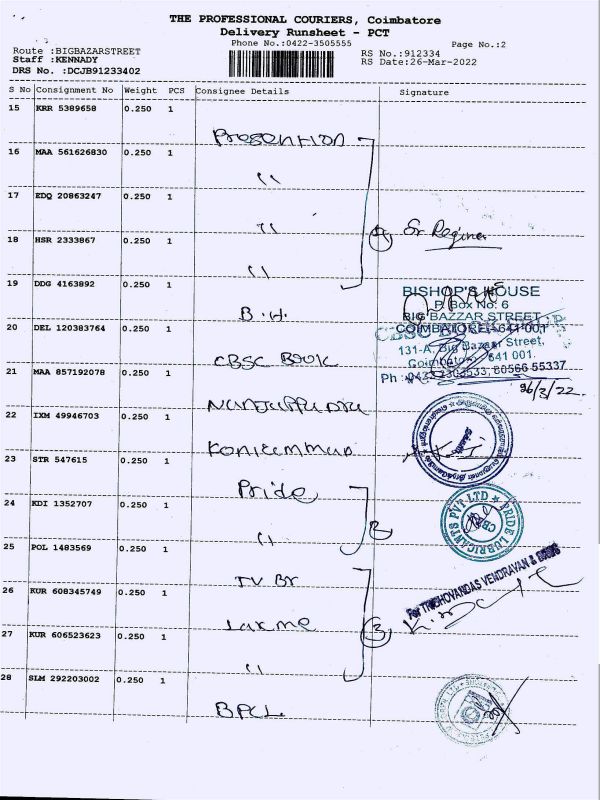 THE PROFESSIONAL COURIERS, Coimbatore
Delivery Runsheet - PCT
Phone No.:0422-3505555
Page No.:2
Route :BIGBAZARSTREET
Staff :KENNADY
DRS No. :DCJB91233402
RS No.:912334
RS Date:26-Mar-2022
S No Consignment No Weight PCS Consignee Details Signature
15 KRR 5389658 0.250 1
Presention
16 MAA 561626830 0.250 1
"
17 EDQ 20863247 0.250 1
"
18 HSR 2333867 0.250 1
4 Sr Regina
"
19 DDG 4163892 0.250 1
B.H.
BISHOP'S HOUSE
P. Box No. 6
BIG BAZZAR STREET
COIMBATORE - 641 001
20 DEL 120383764 0.250 1
CBSC BOOK
CBSC BOOK SHOP
131-A, Big Bazaar Street,
Coimbatore - 641 001.
Ph : 0422 2303533, 80566 55337
26/3/22.
21 MAA 857192078 0.250 1
22 IXM 49946703 0.250 1
23 STR 547615 0.250 1
Pride
24 KDI 1352707 0.250 1
" 2
PRIDE LUBRICANTS PVT LTD
CBE
25 POL 1483569 0.250 1
TV Br
For TRIBHOVANDAS VENDRAVAN & BROS
26 KUR 608345749 0.250 1
Laxme
27 KUR 606523623 0.250 1
3
"
28 SLM 292203002 0.250 1
BPCL